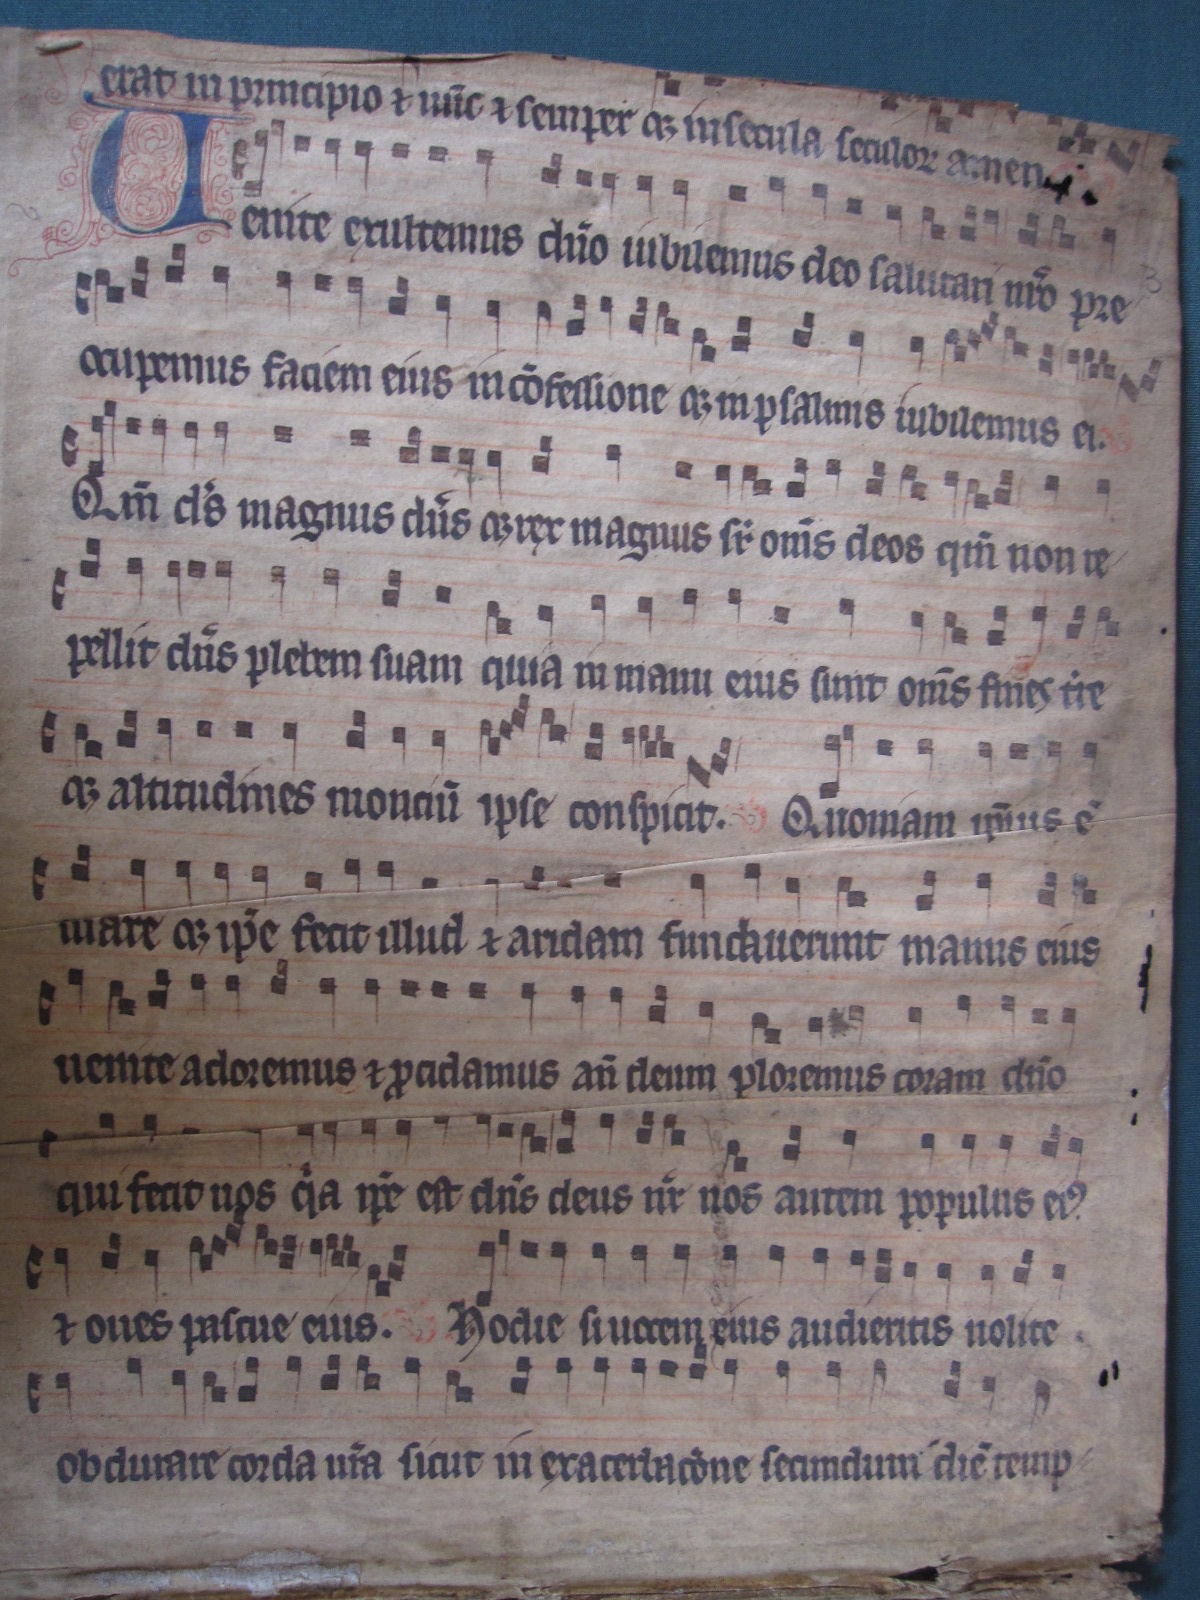 erat in principio ⁊ nūc ⁊ semper qꝫ in secula seculoꝝ amen.
Uenite exultemus dn̄o iubilemus deo salutari nr̄o pre
ocupemus faciem eius in cōfessione qꝫ in psalmis iubilemus ei.
Qm̄ ds̄ magnus dn̄s qꝫ rex magnus sr̄ om̄s deos qm̄ non re
pellit dn̄s plebem suam quia in manu eius sunt om̄s fines tr̄re
qꝫ altitudines monciū ipse conspicit. Quoniam ip̄ius ē
mare qꝫ ip̄e fecit illud ⁊ aridam fundauerunt manus eius
uenite adoremus ⁊ ꝓcidamus an̄ deum ploremus coram dn̄o
qui fecit nos qͥa ip̄e est dn̄s deus nr̄ nos autem populus eiꝰ
⁊ oues pascue eius. Hodie si uocem eius audieritis nolite
obdurare corda ur̄a sicut in exacerbacōne secundum diē temp